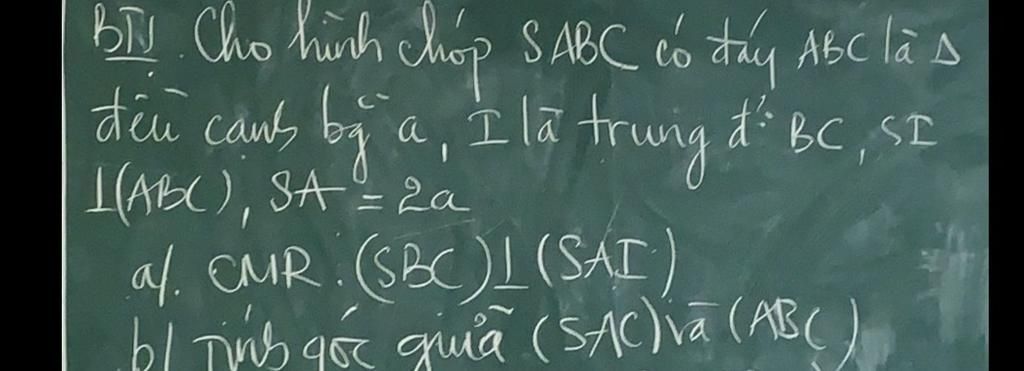 BT1. Cho hình chóp SABC có đáy ABC là Δ
đều cạnh bg a, I là trung đ' BC, SI
⊥(ABC), SA = 2a
a/. CMR: (SBC)⊥(SAI)
b/ Tính góc giữa (SAC) và (ABC)